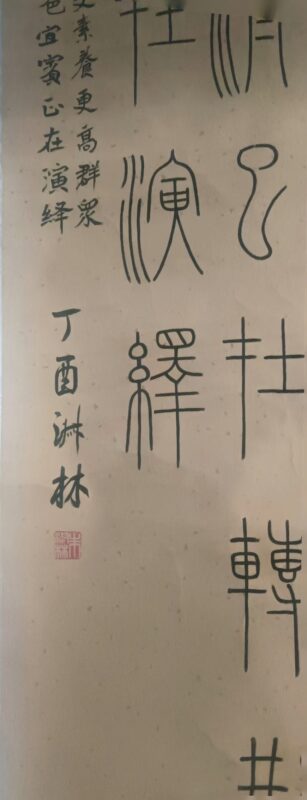 已在轉
在演繹
素養更高群眾
色宜賓正在演绎
丁酉淋林